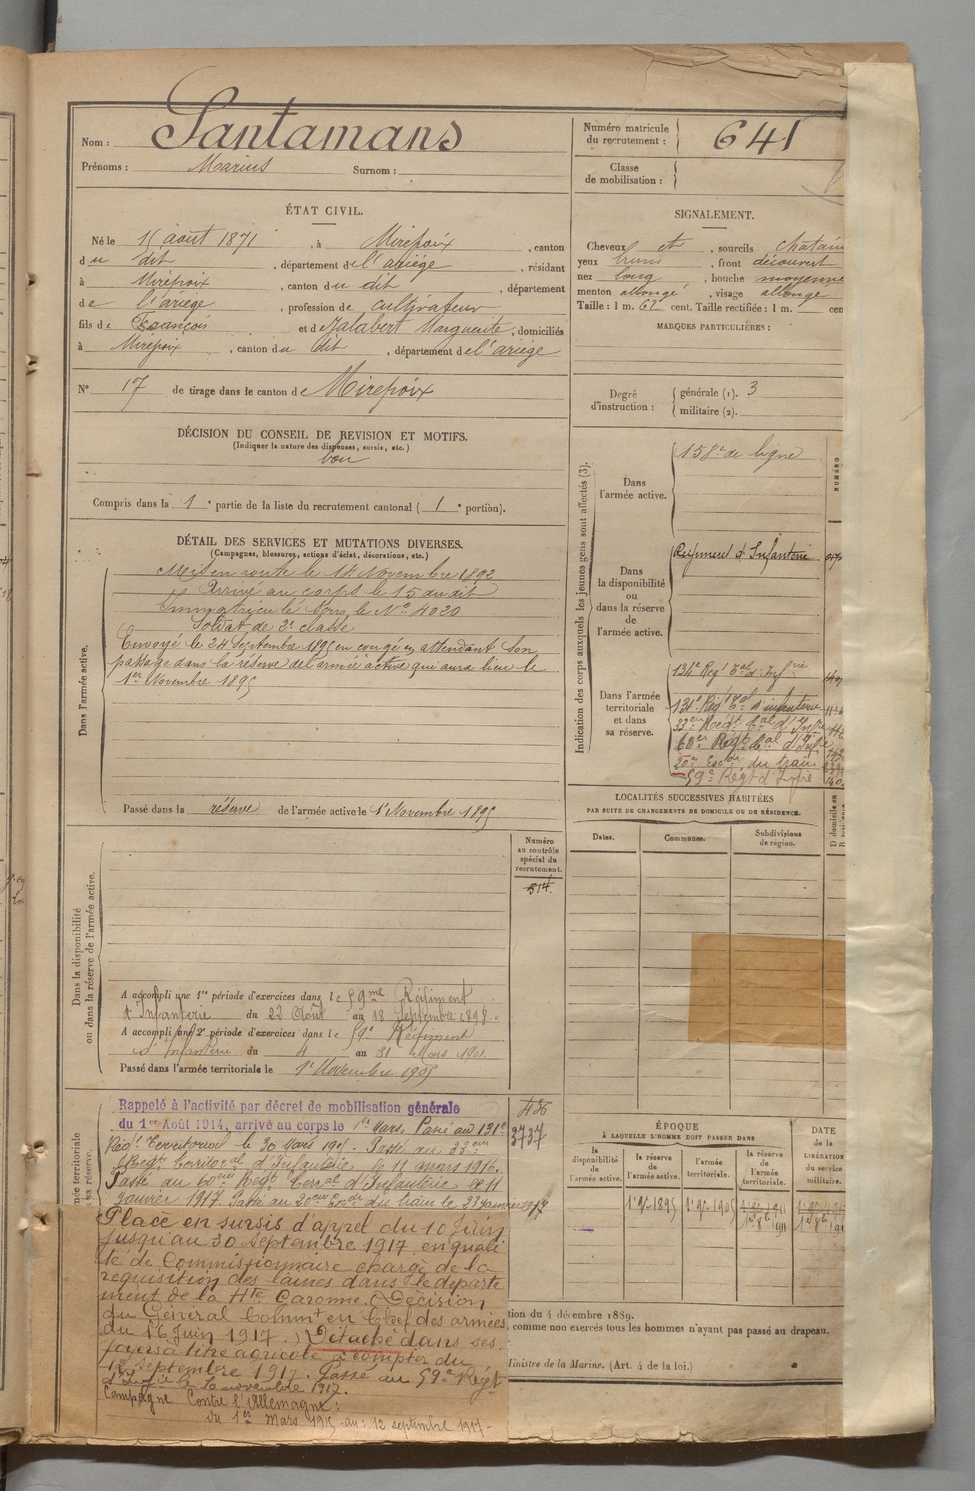 Nom : Santamans
Prénoms : Marius Surnom :
Numéro matricule du recrutement : 641
Classe de mobilisation :
ÉTAT CIVIL.
Né le 15 août 1871, à Mirepoix, canton
du dit, département de l'ariège, résidant
à Mirepoix, canton du dit, département
de l'ariège, profession de cultivateur
fils de François et de Jalabert Marguerite, domiciliés
à Mirepoix, canton du dit, département de l'ariège
N° 17 de tirage dans le canton de Mirepoix
SIGNALEMENT.
Cheveux et, sourcils chatain
yeux bruns, front découvert
nez long, bouche moyenne
menton allongé, visage allongé
Taille : 1 m. 62 cent. Taille rectifiée : 1 m. cen
MARQUES PARTICULIÈRES :
Degré d'instruction :
générale (1). 3
militaire (2).
DÉCISION DU CONSEIL DE REVISION ET MOTIFS.
(Indiquer la nature des dispenses, sursis, etc.)
bon
Compris dans la 1e partie de la liste du recrutement cantonal (1e portion).
DÉTAIL DES SERVICES ET MUTATIONS DIVERSES.
(Campagnes, blessures, actions d'éclat, décorations, etc.)
Dans l'armée active.
Mis en route le 14 Novembre 1892
Arrivé au corps le 15 du dit
Immatriculé sous le No 4020
Soldat de 2e classe
Envoyé le 24 Septembre 1895 en congé en attendant son
passage dans la réserve de l'armée active qui aura lieu le
1er Novembre 1895
Passé dans la réserve de l'armée active le 1er Novembre 1895
Indication des corps auxquels les jeunes gens sont affectés (3).
NUMÉRO
Dans l'armée active.
158e de ligne
Dans la disponibilité ou dans la réserve de l'armée active.
Régiment d'Infanterie
Dans l'armée territoriale et dans sa réserve.
134e Régt Tal d'Infrie
131e Régt Tal d'infanterie
33eme Regt Tal d'Infrie
60eme Regt Tal d'Infrie
20me Escon du train
59e Régt d'Infie
LOCALITÉS SUCCESSIVES HABITÉES
PAR SUITE DE CHANGEMENTS DE DOMICILE OU DE RÉSIDENCE.
Dates. Communes. Subdivisions de région.
Dans la disponibilité ou dans la réserve de l'armée active.
Numéro au contrôle spécial du recrutement.
514.
A accompli une 1re période d'exercices dans le 59me Régiment
d'Infanterie du 22 Août au 18 Septembre 1898.
A accompli une 2e période d'exercices dans le 59e Régiment
d'Infanterie du 4 au 31 Mars 1901.
Passé dans l'armée territoriale le 1er Novembre 1905
Rappelé à l'activité par décret de mobilisation générale
du 1er Août 1914, arrivé au corps le 1er Mars. Passé au 131e
Régt Territorial le 30 Mars 1915. Passé au 33eme
Regt territoal d'Infanterie le 11 mars 1916.
Passé au 60eme Regt Terral d'Infanterie le 11
janvier 1917. Passé au 20eme Escon du train le 23 janvier 1917
3737
Placé en sursis d'appel du 10 Juin
jusqu'au 30 septembre 1917 en quali
té de Commissionnaire chargé de la
requisition des laines dans le departe
ment de la Hte Garonne. (Décision
du Général Commt en Chef des armées
du 16 Juin 1917.) Détaché dans ses
foyers à titre agricole à compter du
12 septembre 1917. Passé au 59e Régt
d'Infie le 10 novembre 1917.
Campagne Contre l'Allemagne :
du 1er Mars 1915 au : 12 septembre 1917-
ÉPOQUE
À LAQUELLE L'HOMME DOIT PASSER DANS
la disponibilité de l'armée active.
la réserve de l'armée active.
l'armée territoriale.
la réserve de l'armée territoriale.
DATE de la LIBÉRATION du service militaire.
1er 9bre 1895
1er 9bre 1905
tion du 4 décembre 1889.
comme non exercés tous les hommes n'ayant pas passé au drapeau.
Ministre de la Marine. (Art. 4 de la loi.)